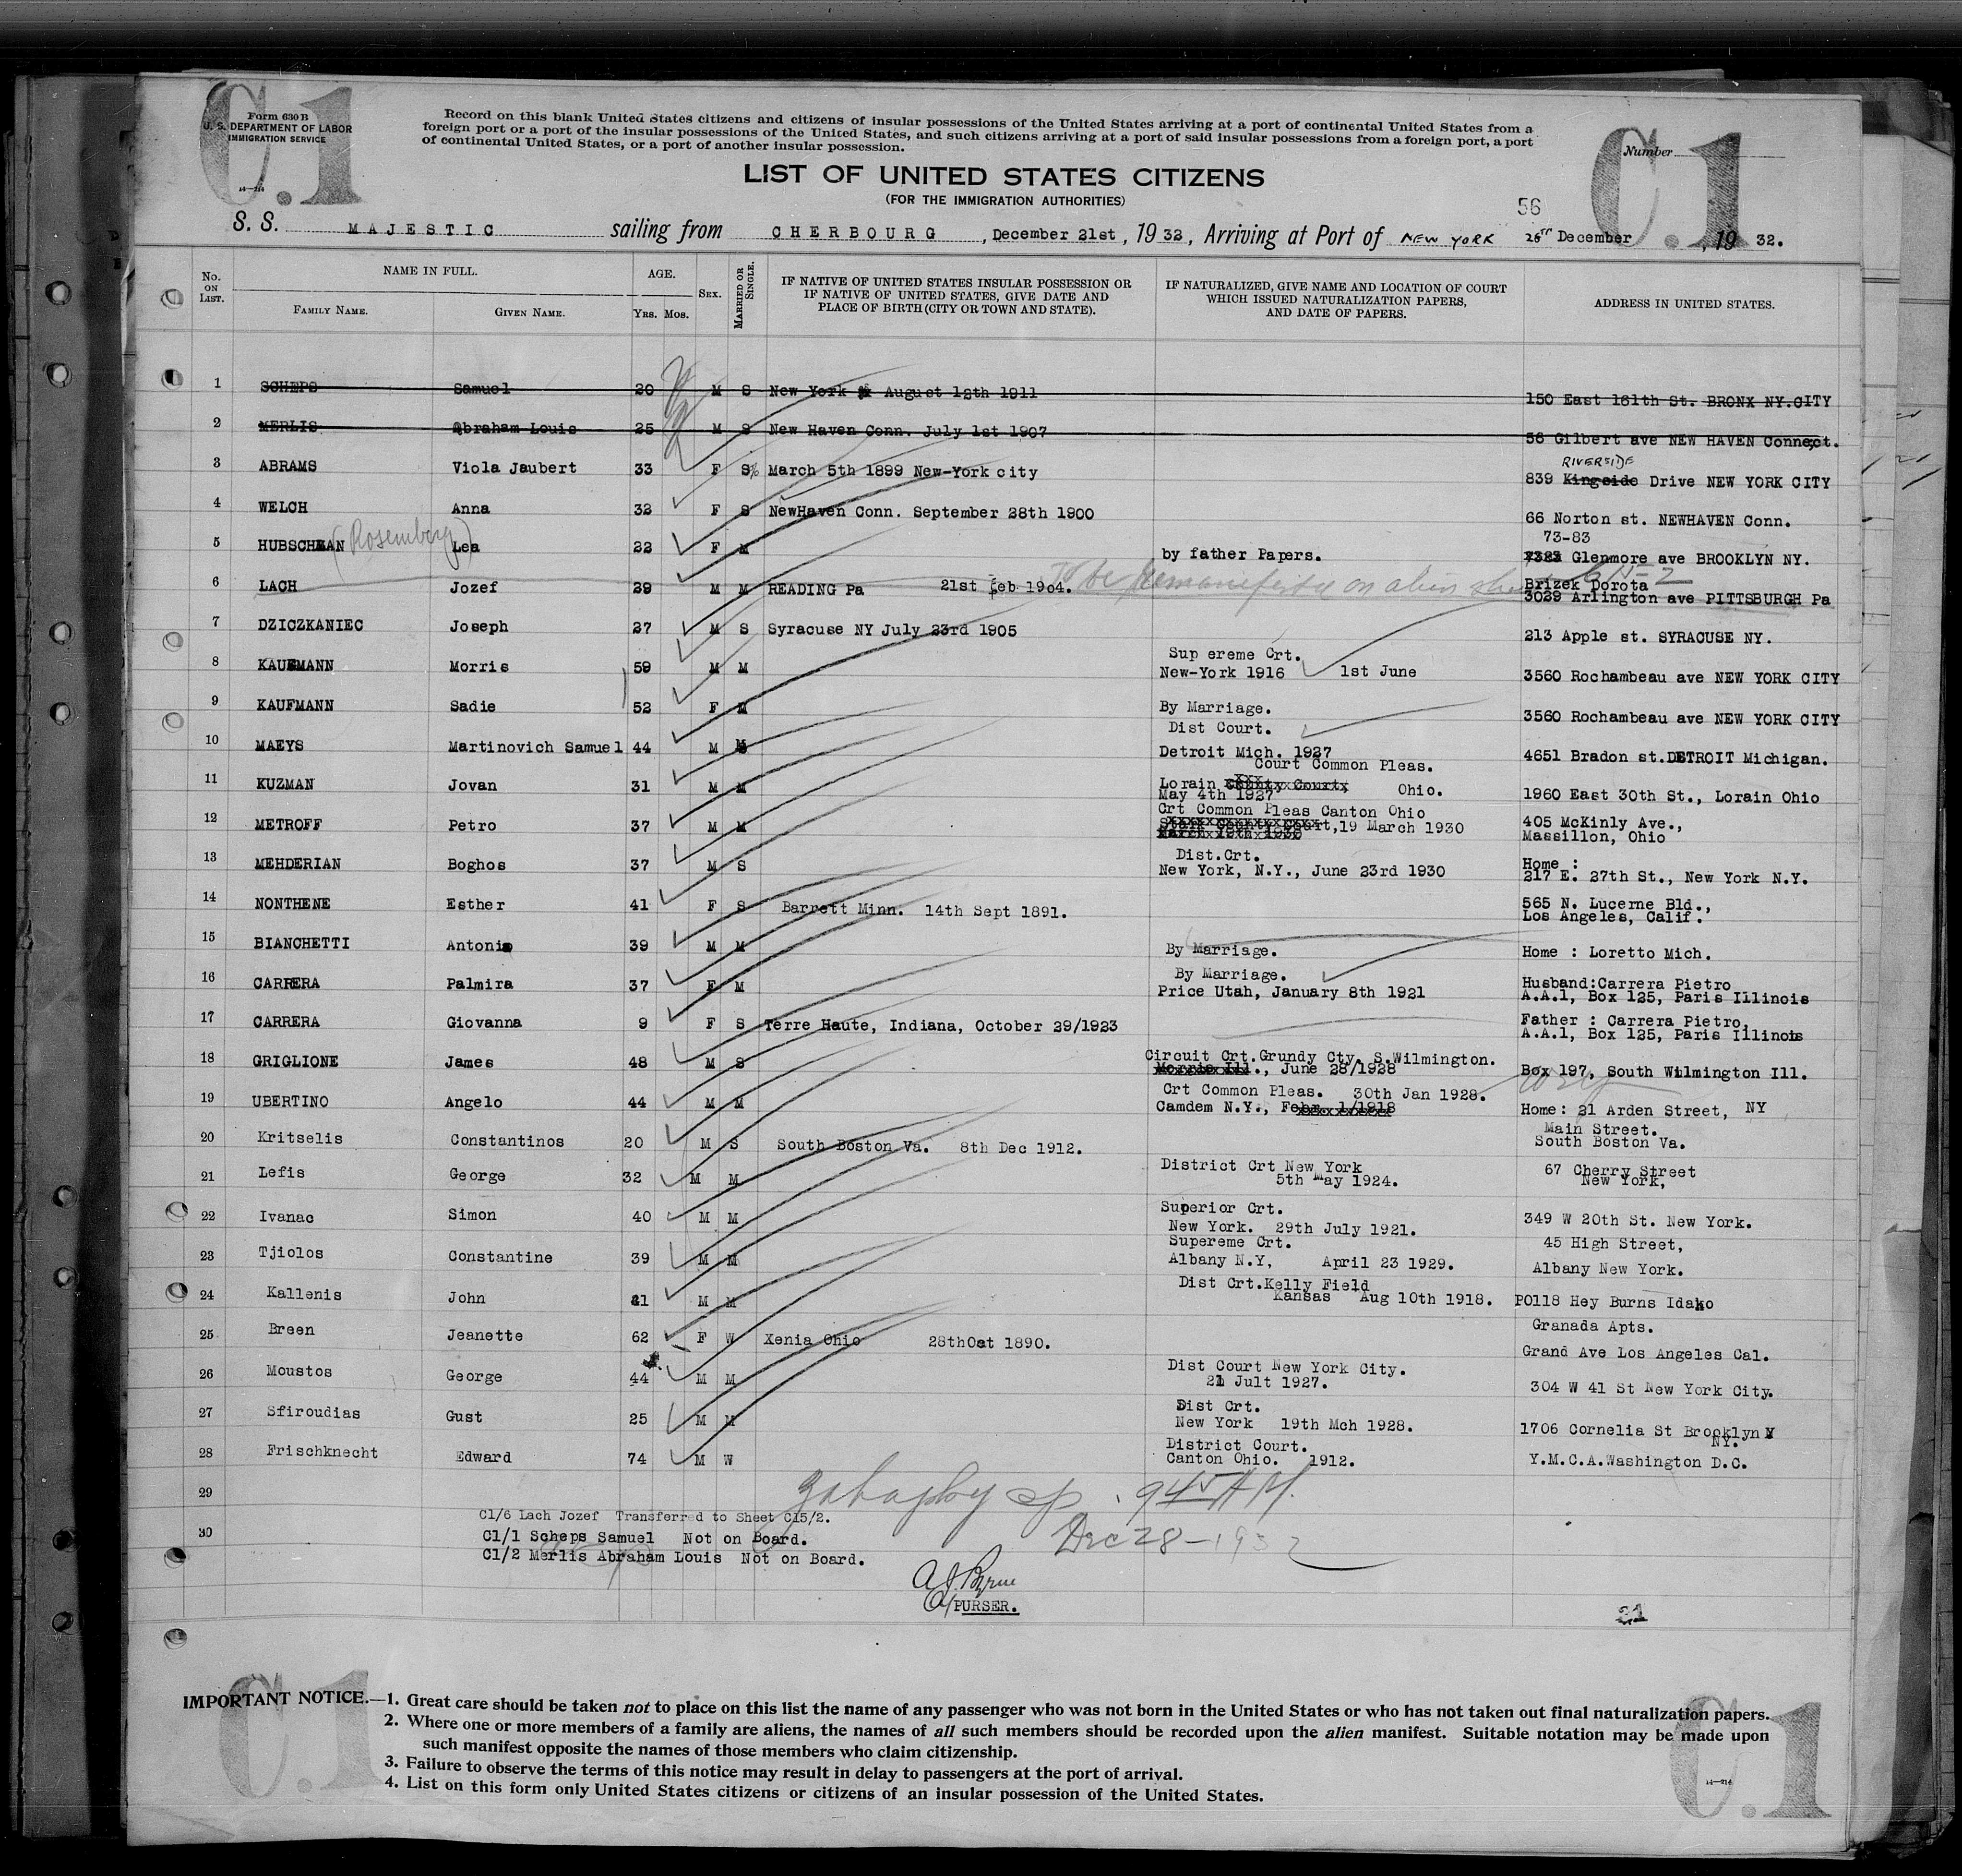 C.1
C.1
Form 630 B
U. S. DEPARTMENT OF LABOR
IMMIGRATION SERVICE
14—214
Record on this blank United States citizens and citizens of insular possessions of the United States arriving at a port of continental United States from a
foreign port or a port of the insular possessions of the United States, and such citizens arriving at a port of said insular possessions from a foreign port, a port
of continental United States, or a port of another insular possession.
Number
LIST OF UNITED STATES CITIZENS
(FOR THE IMMIGRATION AUTHORITIES)
56
S. S. MAJESTIC sailing from CHERBOURG, December 21st, 1932, Arriving at Port of NEW YORK 28 December, 1932.
No. ON LIST. NAME IN FULL. AGE. SEX. MARRIED OR SINGLE. IF NATIVE OF UNITED STATES INSULAR POSSESSION OR IF NATIVE OF UNITED STATES, GIVE DATE AND PLACE OF BIRTH (CITY OR TOWN AND STATE). IF NATURALIZED, GIVE NAME AND LOCATION OF COURT WHICH ISSUED NATURALIZATION PAPERS, AND DATE OF PAPERS. ADDRESS IN UNITED STATES.
FAMILY NAME. GIVEN NAME. YRS. MOS.
1 SCHEPS Samuel 20 M S New York August 12th 1911 150 East 161th St. BRONX NY.CITY
2 MERLIS Abraham Louis 25 M S New Haven Conn. July 1st 1907 56 Gilbert ave NEW HAVEN Connect.
3 ABRAMS Viola Jaubert 33 F S March 5th 1899 New-York city 839 Kingside RIVERSIDE Drive NEW YORK CITY
4 WELCH Anna 32 F S NewHaven Conn. September 28th 1900 66 Norton st. NEWHAVEN Conn.
5 HUBSCHMAN (Rosemberg) Lea 22 F M by father Papers. 73-83 Glenmore ave BROOKLYN NY.
6 LACH Jozef 29 M M READING Pa 21st Feb 1904. To be remanifested on alien sheet Brizek Dorota
3029 Arlington ave PITTSBURGH Pa
7 DZICZKANIEC Joseph 27 M S Syracuse NY July 23rd 1905 213 Apple st. SYRACUSE NY.
8 KAUFMANN Morris 59 M M Sup ereme Crt.
New-York 1916 1st June 3560 Rochambeau ave NEW YORK CITY
9 KAUFMANN Sadie 52 F M By Marriage. 3560 Rochambeau ave NEW YORK CITY
10 MAEYS Martinovich Samuel 44 M M Dist Court.
Detroit Mich. 1927 4651 Bradon st.DETROIT Michigan.
11 KUZMAN Jovan 31 M M Court Common Pleas.
Lorain County Court Ohio.
May 4th 1927 1960 East 30th St., Lorain Ohio
12 METROFF Petro 37 M M Crt Common Pleas Canton Ohio 405 McKinly Ave.,
Stark County Court, 19 March 1930 Massillon, Ohio
March 19th 1930
13 MEHDERIAN Boghos 37 M S Dist.Crt. Home :
New York, N.Y., June 23rd 1930 217 E. 27th St., New York N.Y.
14 NONTHENE Esther 41 F S Barrett Minn. 14th Sept 1891. 565 N. Lucerne Bld.,
Los Angeles, Calif.
15 BIANCHETTI Antonio 39 M M By Marriage. Home : Loretto Mich.
16 CARRERA Palmira 37 F M By Marriage. Husband:Carrera Pietro
Price Utah, January 8th 1921 A.A.1, Box 125, Paris Illinois
17 CARRERA Giovanna 9 F S Terre Haute, Indiana, October 29/1923 Father : Carrera Pietro,
A.A.1, Box 125, Paris Illinois
18 GRIGLIONE James 48 M S Circuit Crt.Grundy Cty. S.Wilmington.
Morris Ill., June 28/1928 Box 197, South Wilmington Ill.
19 UBERTINO Angelo 44 M M Crt Common Pleas. 30th Jan 1928.
Camdem N.Y., Febr. 1/1918 Home: 21 Arden Street, NY
20 Kritselis Constantinos 20 M S South Boston Va. 8th Dec 1912. Main Street.
South Boston Va.
21 Lefis George 32 M M District Crt New York 67 Cherry Street
5th May 1924. New York,
22 Ivanac Simon 40 M M Superior Crt.
New York. 29th July 1921. 349 W 20th St. New York.
23 Tjiolos Constantine 39 M M Supereme Crt. 45 High Street,
Albany N.Y, April 23 1929. Albany New York.
24 Kallenis John 41 M M Dist Crt.Kelly Field
Kansas Aug 10th 1918. P0118 Hey Burns Idaho
25 Breen Jeanette 62 F W Xenia Ohio 28thOct 1890. Granada Apts.
Grand Ave Los Angeles Cal.
26 Moustos George 44 M M Dist Court New York City.
21 Jult 1927. 304 W 41 St New York City.
27 Sfiroudias Gust 25 M M Dist Crt.
New York 19th Mch 1928. 1706 Cornelia St Brooklyn
NY.
28 Frischknecht Edward 74 M W District Court.
Canton Ohio. 1912. Y.M.C.A.Washington D.C.
29
9 45 AM.
C1/6 Lach Jozef Transferred to Sheet C15/2.
30
C1/1 Scheps Samuel Not on Board.
Dec 28-1932
C1/2 Merlis Abraham Louis Not on Board.
A J Byrne
A/PURSER.
21
C.1
C.1
IMPORTANT NOTICE.—1. Great care should be taken not to place on this list the name of any passenger who was not born in the United States or who has not taken out final naturalization papers.
2. Where one or more members of a family are aliens, the names of all such members should be recorded upon the alien manifest. Suitable notation may be made upon
such manifest opposite the names of those members who claim citizenship.
3. Failure to observe the terms of this notice may result in delay to passengers at the port of arrival.
4. List on this form only United States citizens or citizens of an insular possession of the United States.
14—214